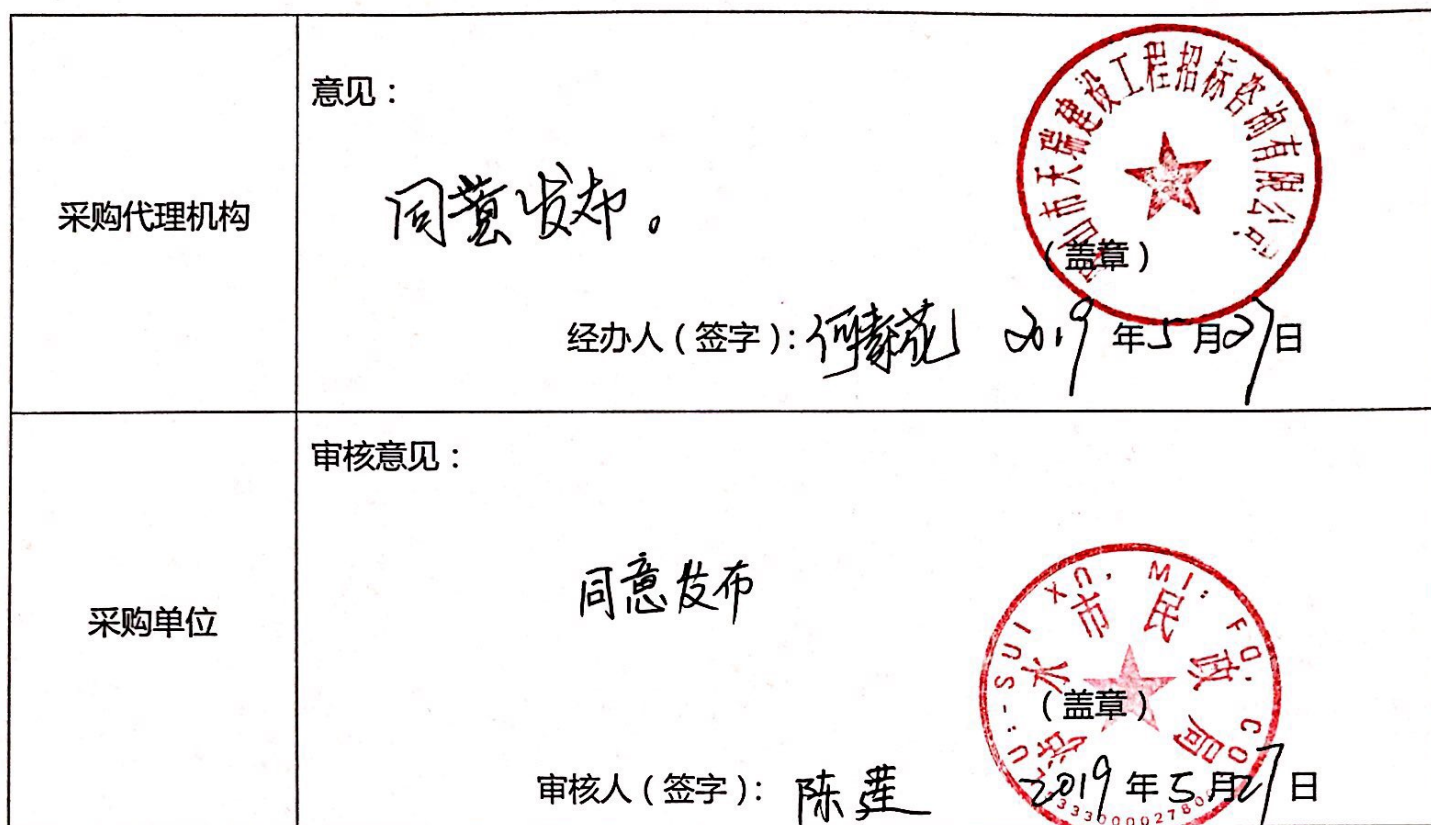 采购代理机构
意见：
同意发布。
山市天瑞建设工程招标咨询有限公司
（盖章）
经办人（签字）：何 花 2019年5月27日
采购单位
审核意见：
同意发布
水市民政局
（盖章）
审核人（签字）：陈莲 2019年5月27日